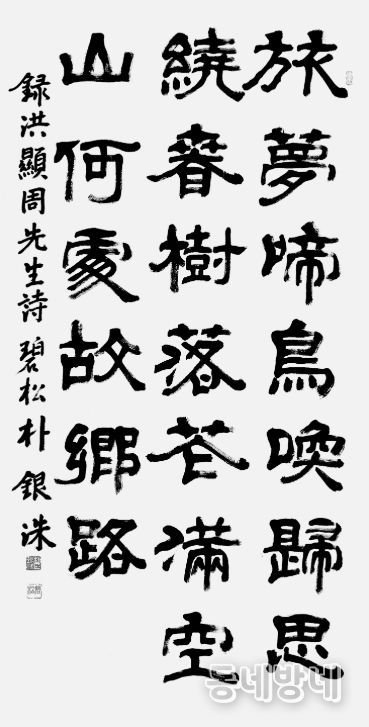 旅夢啼鳥喚歸思
繞春樹落花滿空
山何處故鄉路
録洪顯周先生詩 碧松朴銀洙
동네방네